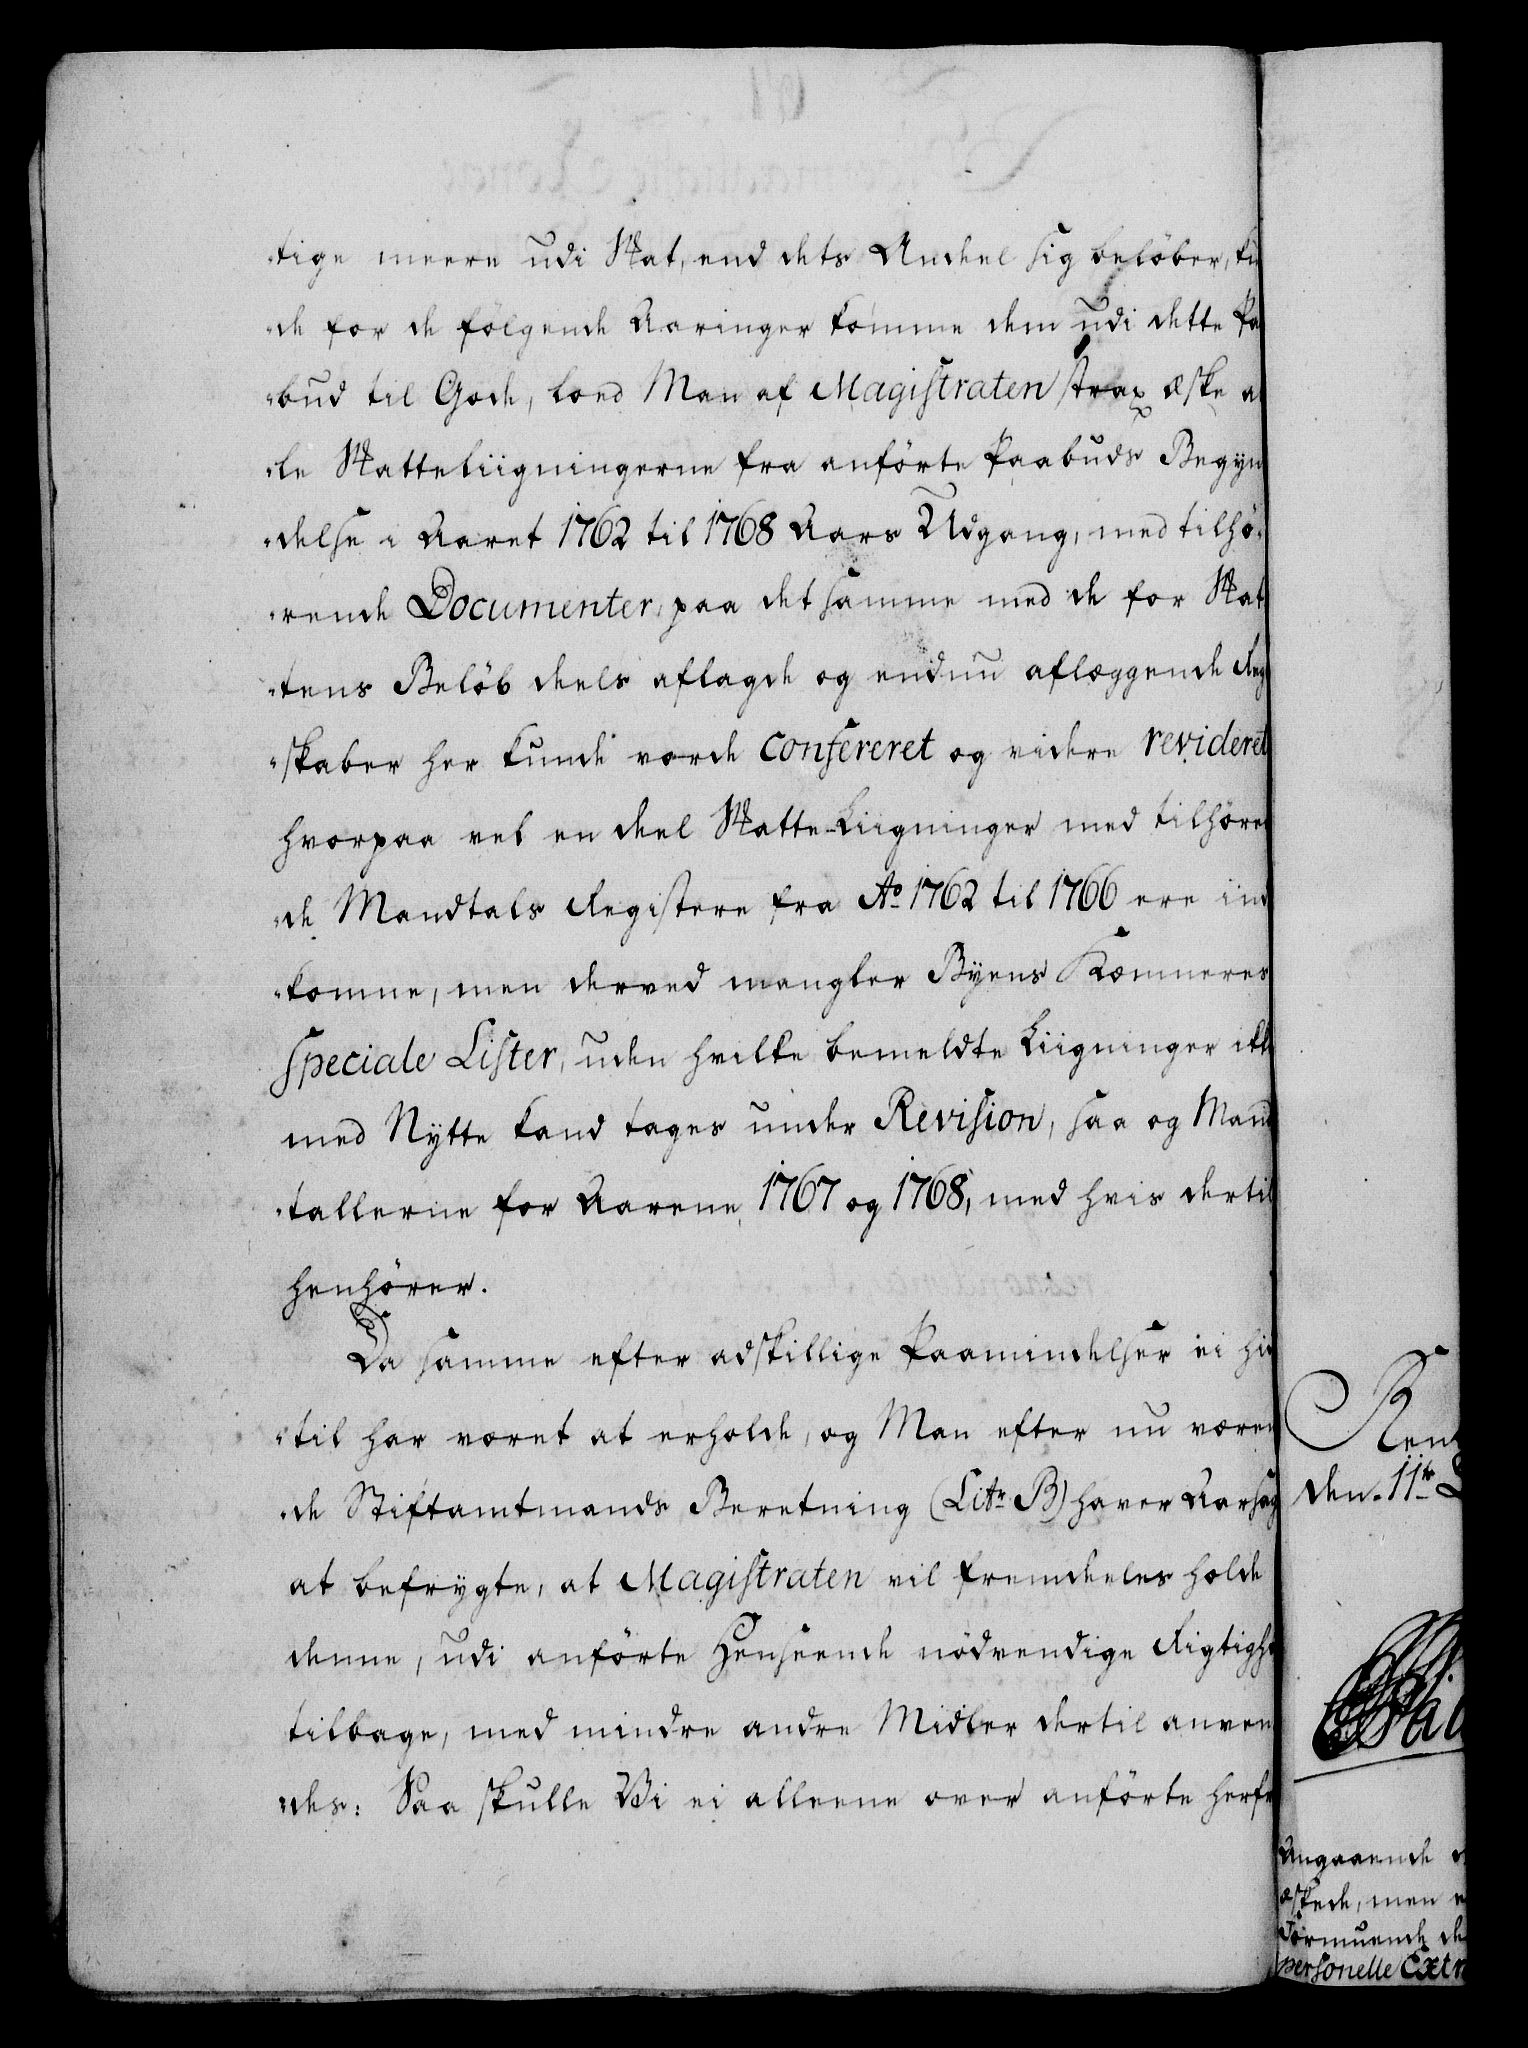 „tige meere udi Skat, end dets Andeel sig beløber, ku
„de for de følgende Aaringer komme dem udi dette Pa
„bud til Gode, loed Man af Magistraten strax æske al
„le Skatteliigningerne fra anførte Paabuds Begyn
„delse i Aaret 1762 til 1768 Aars Udgang, med tilhø„
„rende Documenter, paa det samme med de for Skat
„tens Beløb deels aflagde og endnu aflæggende Reg
„skaber her kunde vorde confereret og videre revideret
hvorpaa vel en deel Skatte-Liigninger med tilhøren
„de Mandtals Registere fra Ao 1762 til 1766 ere ind
„komne, men derved mangler Byens Kæmneres
speciale Lister, uden hvilke bemeldte Liigninger ikk
med Nytte kand tages under Revision, saa og Mand
„tallerne for Aarene 1767 og 1768, med hvis dertil
henhører.
Da samme efter adskillige Paamindelser ei hid
„til har været at erholde, og Man efter nu væren
„de Stiftamtmands Beretning (Litr B) haver Aarsag
at befrygte, at Magistraten vil fremdeeles holde
denne, udi anførte Henseende nødvendige Rigtighe
tilbage, med mindre andre Midler dertil anven
„des: Saa skulle Vi ei alleene over anførte herfr
Rent
den 11te
Angaaende
æskede, men
Formuende de
personelle Extr